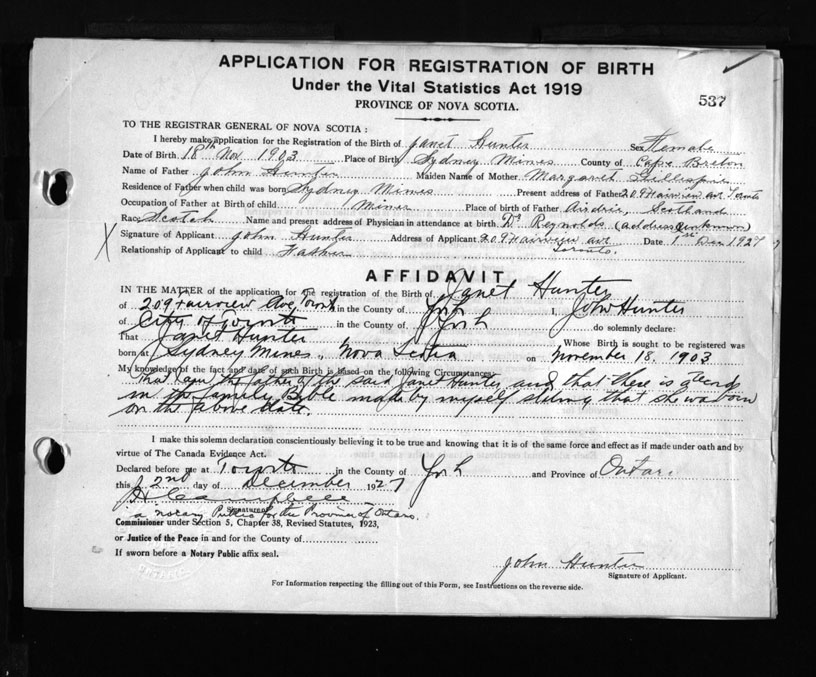 APPLICATION FOR REGISTRATION OF BIRTH
Under the Vital Statistics Act 1919
PROVINCE OF NOVA SCOTIA.
537
TO THE REGISTRAR GENERAL OF NOVA SCOTIA :
I hereby make application for the Registration of the Birth of Janet Hunter Sex Female
Date of Birth 18th Nov 1903 Place of Birth Sydney Mines County of Cape Breton
Name of Father John Hunter Maiden Name of Mother Margaret Gillespie
Residence of Father when child was born Sydney Mines Present address of Father 209 Fairview Ave Toronto
Occupation of Father at Birth of child Miner Place of birth of Father Airdrie, Scotland
Race Scotch Name and present address of Physician in attendance at birth Dr Reynolds (address unknown)
X Signature of Applicant John Hunter Address of Applicant 209 Fairview ave Toronto. Date 1st Dec 1927
Relationship of Applicant to child Father
AFFIDAVIT
IN THE MATTER of the application for the registration of the Birth of Janet Hunter
of 209 Fairview Ave Toronto in the County of York I, John Hunter
of City of Toronto in the County of York do solemnly declare:
That Janet Hunter Whose Birth is sought to be registered was
born at Sydney Mines, Nova Scotia on November 18. 1903
My knowledge of the fact and date of such Birth is based on the following Circumstances:
That I am the father of the said Janet Hunter and that there is a record
in the family Bible made by myself stating that she was born
on the above date.
I make this solemn declaration conscientiously believing it to be true and knowing that it is of the same force and effect as if made under oath and by
virtue of The Canada Evidence Act.
Declared before me at Toronto in the County of York and Province of Ontario
this 2nd day of December 1927
Campbell
Signature of
a notary Public for the Province of Ontario.
Commissioner under Section 5, Chapter 38, Revised Statutes, 1923,
or Justice of the Peace in and for the County of
If sworn before a Notary Public affix seal.
John Hunter
Signature of Applicant.
For Information respecting the filling out of this Form, see Instructions on the reverse side.